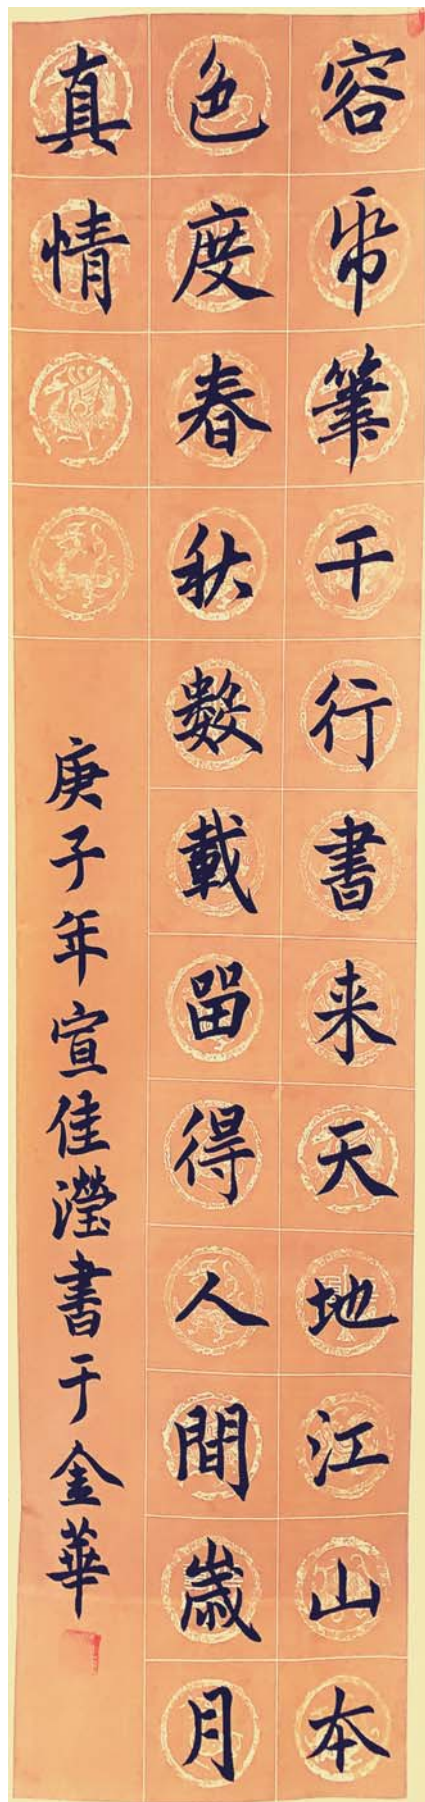 容帋筆千行書来天地江山本
色度春秋數載留得人間歲月
真情
庚子年宣佳瀅書于金華